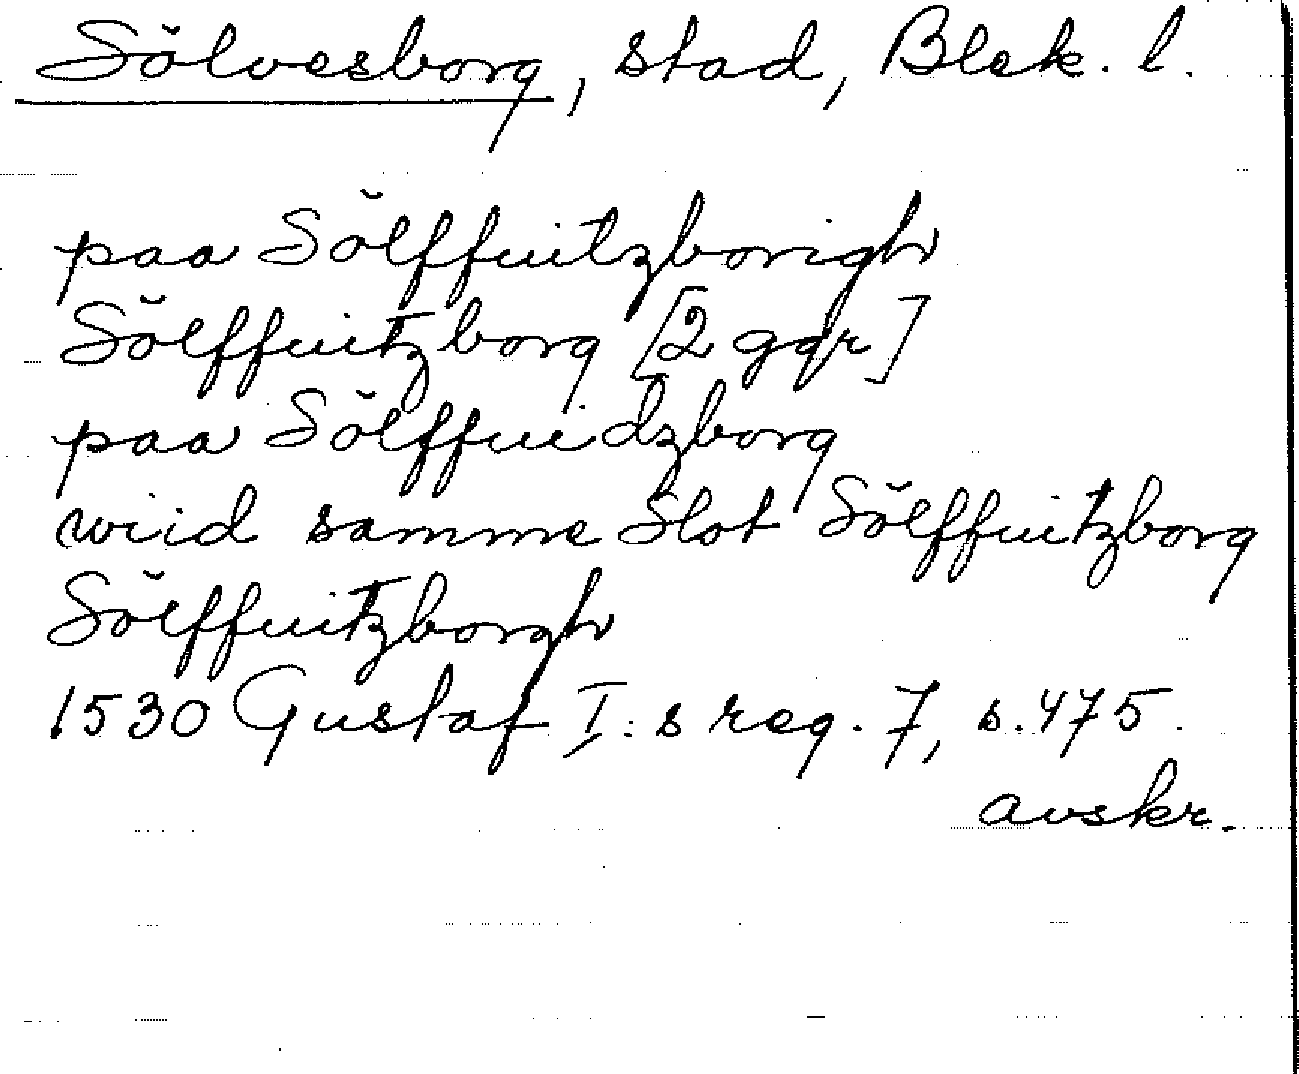 Sölvesborg, stad, Blek. l.
paa Sölffuitzborigh
Sölffuitzborg [2 ggr]
paa Sölffuidzborg
wiid samme Slot Sölffuitzborg
Sölffuitzborgh
1530 Gustaf I:s reg. 7, s. 475.
avskr.